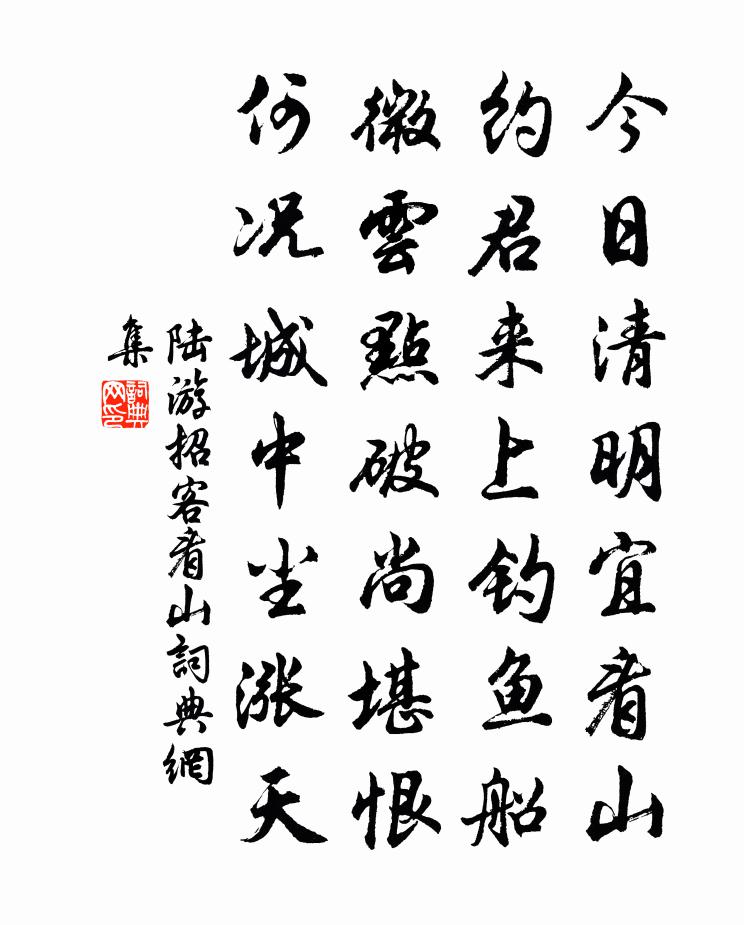 今日清明宜看山
約君来上钓鱼船
微雲點破尚堪恨
何况城中尘漲天
陆游招客看山詞典網
集
詞典网印